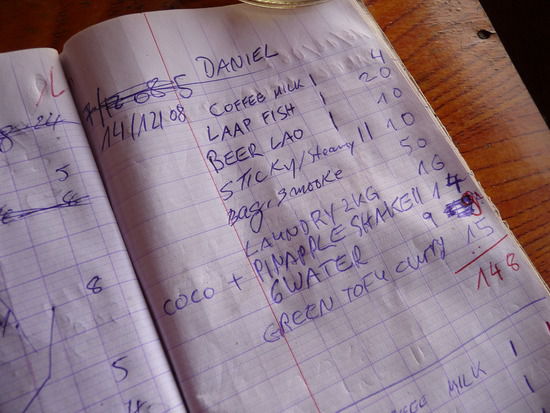 DANIEL
14/12/08
COFFEE MILK 1 4
LAAP FISH 1 20
BEER LAO 1 10
STICKY/steamy 11 10
Bag smooke 50
LAUNDRY 2KG 16
COCO + PINAPPLE SHAKE 11 14
6 WATER 9
GREEN TOFU CURRY 15
148
24
5
8
5
4
COFFEE MILK 1
1